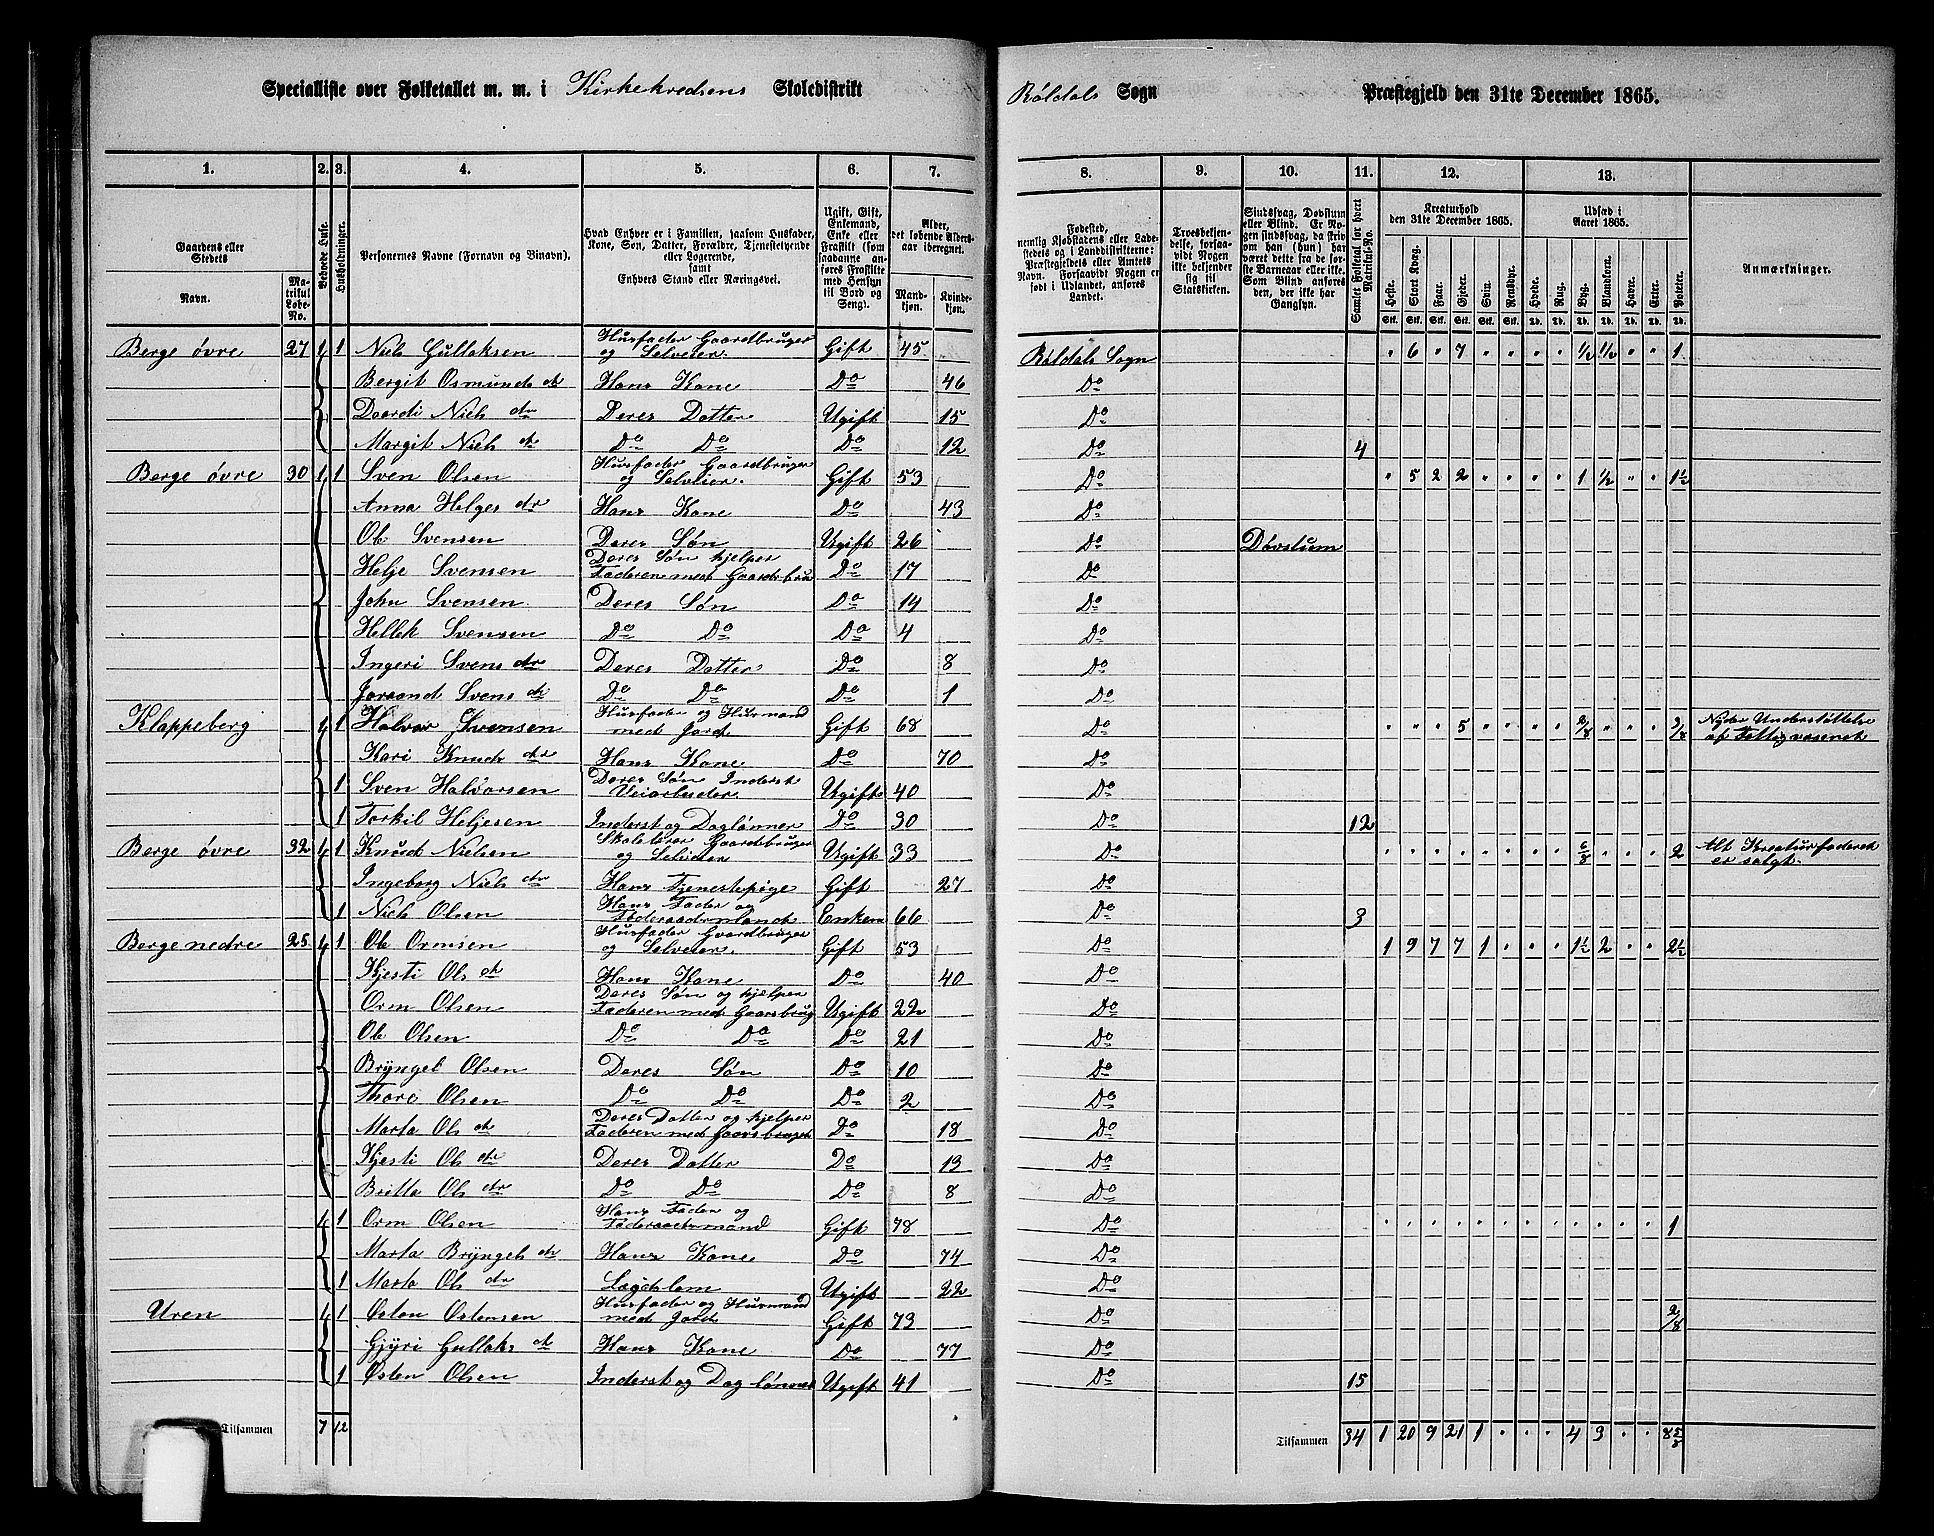 Specialliste over Folketallet m. m. i Kirkekredsens Skoledistrikt Røldals Sogn Præstegjeld den 31te December 1865.
1. 2. 3. 4. 5. 6. 7. 8. 9. 10. 11. 12. 13.
Gaardens eller Stedets
Navn.
Matrikul Løbe-No.
Beboede Huse.
Husholdninger.
Personernes Navne (Fornavn og Binavn).
Hvad Enhver er i Familien, saasom Husfader, Kone, Søn, Datter, Forældre, Tjenestetyende eller Logerende, samt Enhvers Stand eller Næringsvei.
Ugift, Gift, Enkemand, Enke eller Fraskilt (som saadanne anføres Fraskilte med Hensyn til Bord og Seng).
Alder, det løbende Alders-aar iberegnet.
Mandkjøn.
Kvindekjøn.
Fødested, nemlig Kjøbstadens eller Ladestedets og i Landdistrikterne: Præstegjeldets eller Amtets Navn. Forsaavidt Nogen er født i Udlandet, anføres Landet.
Troesbekjendelse, forsaavidt Nogen ikke bekjender sig til Statskirken.
Sindssvag, Døvstum eller Blind. Er Nogen sindssvag, da skriv om han (hun) har været dette fra de første Barneaar eller ikke. Som Blind anføres den, der ikke har Gangsyn.
Samlet Folketal for hvert Matrikul-No.
Kreaturhold den 31te December 1865.
Heste. Stort Kvæg. Faar. Gjeder. Svin. Rensdyr.
Udsæd i Aaret 1865.
Hvede. Rug. Byg. Blandkorn. Havre. Erter. Poteter.
Stk. Stk. Stk. Stk. Stk. Stk. Td. Td. Td. Td. Td. Td. Td.
Anmærkninger.
Berge øvre 27 1 1 Niels Gullaksen Husfader Gaardbruger og Selveier. Gift 45 Røldals Sogn " 6 " 7 " " " " 1/2 1/2 " " 1
Bergit Osmunds dr Hans Kone Do 46 Do
Daardi Niels dr Deres Datter Ugift 15 Do
Margit Niels dr Do Do Do 12 Do 4
Berge øvre 30 1 1 Sven Olsen Husfader Gaardbruger og Selveier. Gift 53 Do " 5 2 2 " " " " 1 1/2 " " 1 1/2
Anna Helges dr Hans Kone Do 43 Do
Ole Svensen Deres Søn Ugift 26 Do Døvstum
Helje Svensen Deres Søn hjelper Faderen med Gaardsbru Do 17 Do
John Svensen Deres Søn Do 14 Do
Hellek Svensen Do Do Do 4 Do
Ingeri Svens dr Deres Datter Do 8 Do
Joraand Svens dr Do Do Do 1 Do
Klappeberg 1 1 Halvor Svensen Husfader og Husmand med Jord Gift 68 Do " " " 5 " " " " 2/8 " " " 3/8 Nyder Understøttelse af Fattigvæsenet
Kari Knuds dr Hans Kone Do 70 Do
1 Sven Halvorsen Deres Søn Inderst Veiarbeider. Ugift 40 Do
1 Torkil Heljesen Inderst og Daglønner Do 30 Do 12
Berge øvre 32 1 1 Knud Nielsen Skolelærer Gaardbruger og Selveier Ugift 33 Do " " " " " " " " 6/8 " " " 2 Alt Kreaturfoderet er solgt.
Ingeborg Niels dr Hans Tjenestepige Gift 27 Do
1 Niels Olsen Hans Fader og Føderaadsmand Enkem 66 Do 3
Berge nedre 25 1 1 Ole Ormsen Husfader Gaardbruger og Selveier. Gift 53 Do 1 9 7 7 1 " " " 1 1/2 2 " " 2 1/2
Kjesti Ols dr Hans Kone Do 40 Do
Orm Olsen Deres Søn og hjelper Faderen med Gaarsbrug Ugift 22 Do
Ole Olsen Do Do Do 21 Do
Bryngel Olsen Deres Søn Do 10 Do
Thore Olsen Do Do Do 2 Do
Marta Ols dr Deres Datter og hjelper Faderen med Gaarsbruget Do 18 Do
Kjesti Ols dr Deres Datter Do 13 Do
Britta Ols dr Do Do Do 8 Do
1 1 Orm Olsen Hans Fader og Føderaadsmand Gift 78 Do " " " " " " " " " " " " 1
Marta Bryngels dr Hans Kone Do 74 Do
1 Marta Ols dr Lægdslem Ugift 22 Do
Uren 1 1 Østen Østensen Husfader og Husmand med Jord Gift 73 Do 2/8
Gjyri Gullaks dr Hans Kone Do 77 Do
1 Østen Olsen Inderst og Daglønner Ugift 41 Do 15
Tilsammen 7 12 Tilsammen 34 1 20 9 21 1 " " " 4 3 " " 8 5/8